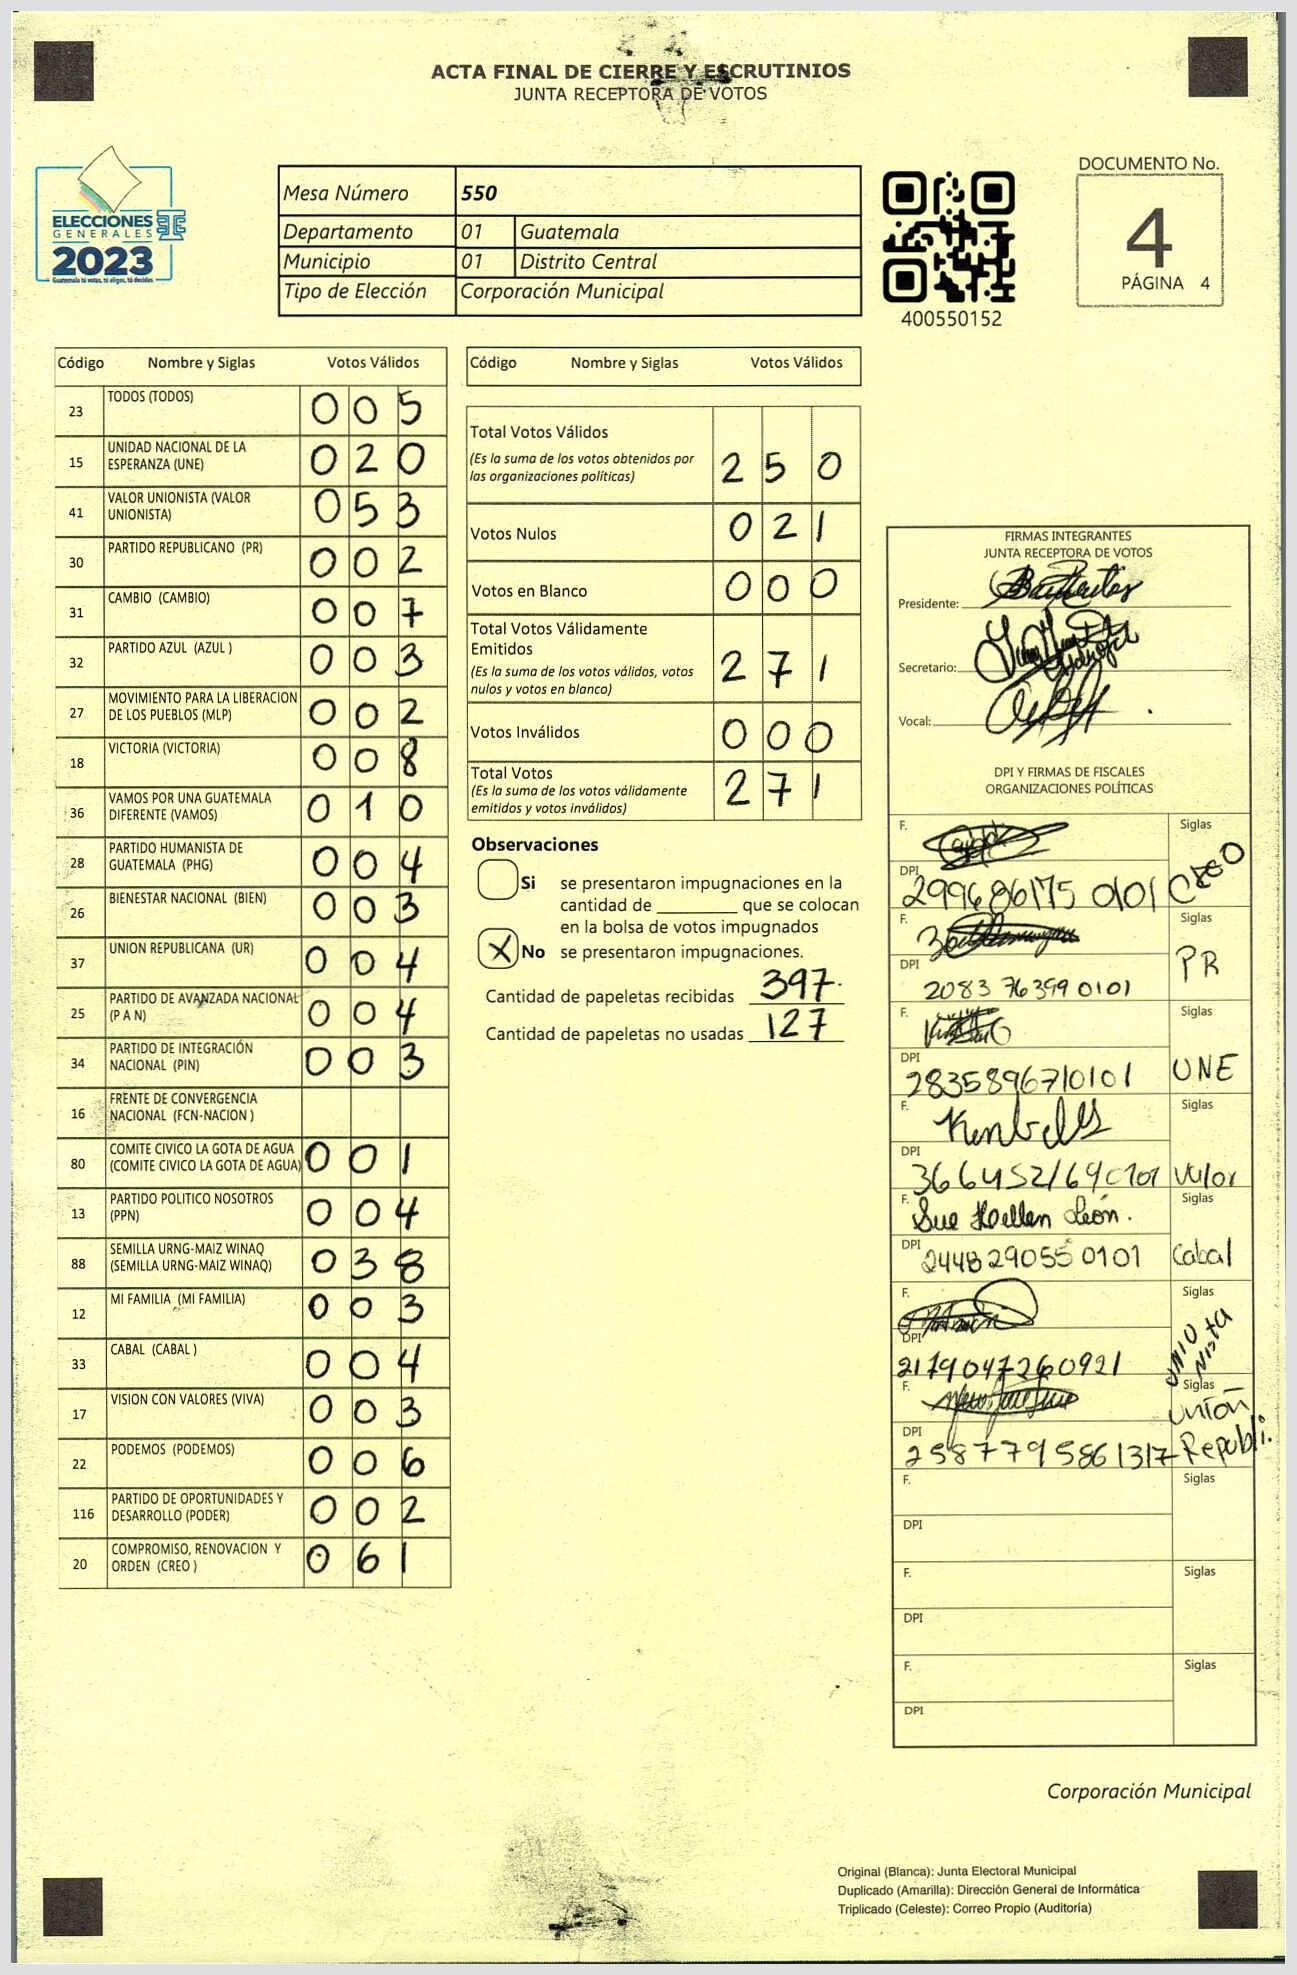 ACTA FINAL DE CIERRE Y ESCRUTINIOS
JUNTA RECEPTORA DE VOTOS
ELECCIONES
GENERALES
2023
Guatemala tú votas, tú eliges, tú decides
Mesa Número 550
Departamento 01 Guatemala
Municipio 01 Distrito Central
Tipo de Elección Corporación Municipal
400550152
DOCUMENTO No.
4
PÁGINA 4
Código Nombre y Siglas Votos Válidos
23 TODOS (TODOS) 0 0 5
15 UNIDAD NACIONAL DE LA
ESPERANZA (UNE) 0 2 0
41 VALOR UNIONISTA (VALOR
UNIONISTA) 0 5 3
30 PARTIDO REPUBLICANO (PR) 0 0 2
31 CAMBIO (CAMBIO) 0 0 7
32 PARTIDO AZUL (AZUL ) 0 0 3
27 MOVIMIENTO PARA LA LIBERACION
DE LOS PUEBLOS (MLP) 0 0 2
18 VICTORIA (VICTORIA) 0 0 8
36 VAMOS POR UNA GUATEMALA
DIFERENTE (VAMOS) 0 1 0
28 PARTIDO HUMANISTA DE
GUATEMALA (PHG) 0 0 4
26 BIENESTAR NACIONAL (BIEN) 0 0 3
37 UNION REPUBLICANA (UR) 0 0 4
25 PARTIDO DE AVANZADA NACIONAL
(P A N) 0 0 4
34 PARTIDO DE INTEGRACIÓN
NACIONAL (PIN) 0 0 3
16 FRENTE DE CONVERGENCIA
NACIONAL (FCN-NACION )
80 COMITE CIVICO LA GOTA DE AGUA
(COMITE CIVICO LA GOTA DE AGUA) 0 0 1
13 PARTIDO POLITICO NOSOTROS
(PPN) 0 0 4
88 SEMILLA URNG-MAIZ WINAQ
(SEMILLA URNG-MAIZ WINAQ) 0 3 8
12 MI FAMILIA (MI FAMILIA) 0 0 3
33 CABAL (CABAL ) 0 0 4
17 VISION CON VALORES (VIVA) 0 0 3
22 PODEMOS (PODEMOS) 0 0 6
116 PARTIDO DE OPORTUNIDADES Y
DESARROLLO (PODER) 0 0 2
20 COMPROMISO, RENOVACION Y
ORDEN (CREO ) 0 6 1
Código Nombre y Siglas Votos Válidos
Total Votos Válidos
(Es la suma de los votos obtenidos por
las organizaciones políticas) 2 5 0
Votos Nulos 0 2 1
Votos en Blanco 0 0 0
Total Votos Válidamente
Emitidos
(Es la suma de los votos válidos, votos
nulos y votos en blanco) 2 7 1
Votos Inválidos 0 0 0
Total Votos
(Es la suma de los votos válidamente
emitidos y votos inválidos) 2 7 1
Observaciones
Si se presentaron impugnaciones en la
cantidad de ________ que se colocan
en la bolsa de votos impugnados
X No se presentaron impugnaciones.
Cantidad de papeletas recibidas 397
Cantidad de papeletas no usadas 127
FIRMAS INTEGRANTES
JUNTA RECEPTORA DE VOTOS
Presidente:
Secretario:
Vocal:
DPI Y FIRMAS DE FISCALES
ORGANIZACIONES POLÍTICAS
F. Siglas
DPI 299686175 0101 CREO
F. Siglas
DPI 2083 76399 0101 PR
F. Siglas
DPI 2835896710101 UNE
F. Siglas
DPI Valor
F. Sue Hellen León. Siglas
DPI 2448290550101 Cabal
F. Siglas
DPI 2179047260921 UNIONISTA
F. Siglas
DPI 2587795861317 Unión Republi.
F. Siglas
DPI
F. Siglas
DPI
F. Siglas
DPI
Corporación Municipal
Original (Blanca): Junta Electoral Municipal
Duplicado (Amarilla): Dirección General de Informática
Triplicado (Celeste): Correo Propio (Auditoría)